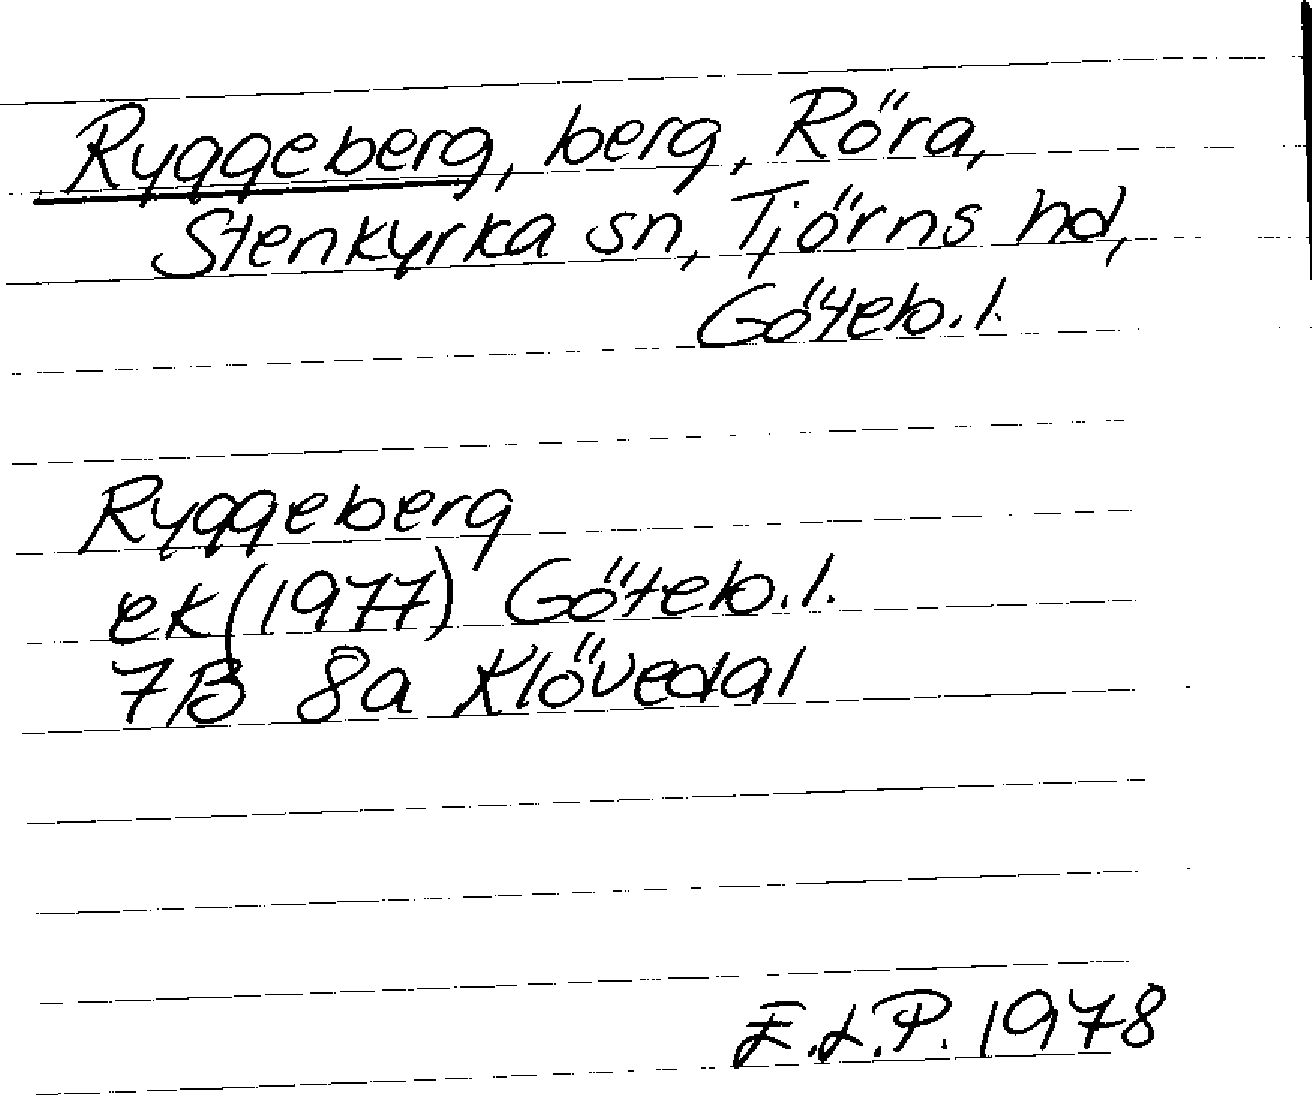 Ryggeberg, berg, Röra,
Stenkyrka sn, Tjörns hd,
Göteb.l.
Ryggeberg
ek(1977) Göteb.l.
7B 8a Klövedal
E.L.P. 1978